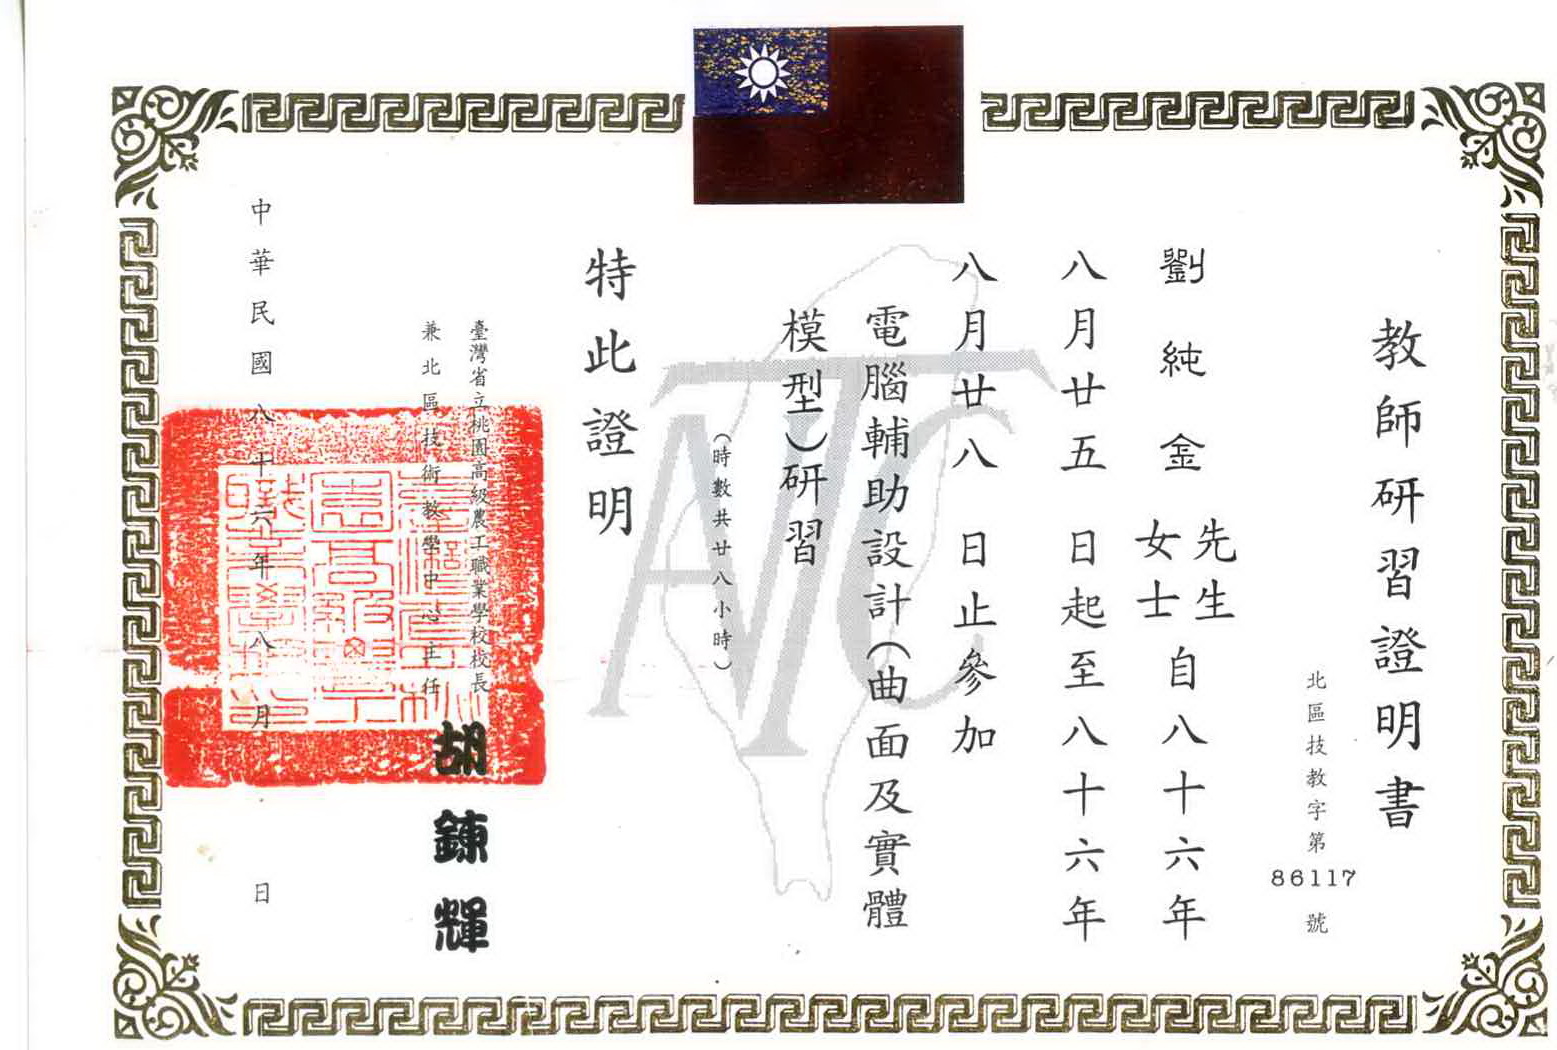 教師研習證明書
北區技教字第86117號
劉純金 先生
女士 自八十六年
八月廿五 日起至八十六年
八月廿八 日止參加
電腦輔助設計(曲面及實體
模型)研習
(時數共廿八小時)
特此證明
臺灣省立桃園高級農工職業學校校長
兼北區技術教學中心主任
胡鍊輝
中華民國八十六年八月 日
ATC